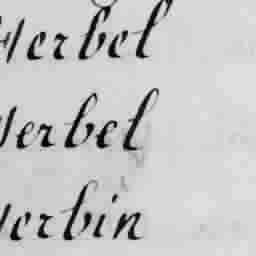 Werbel
Werbel
Werbin